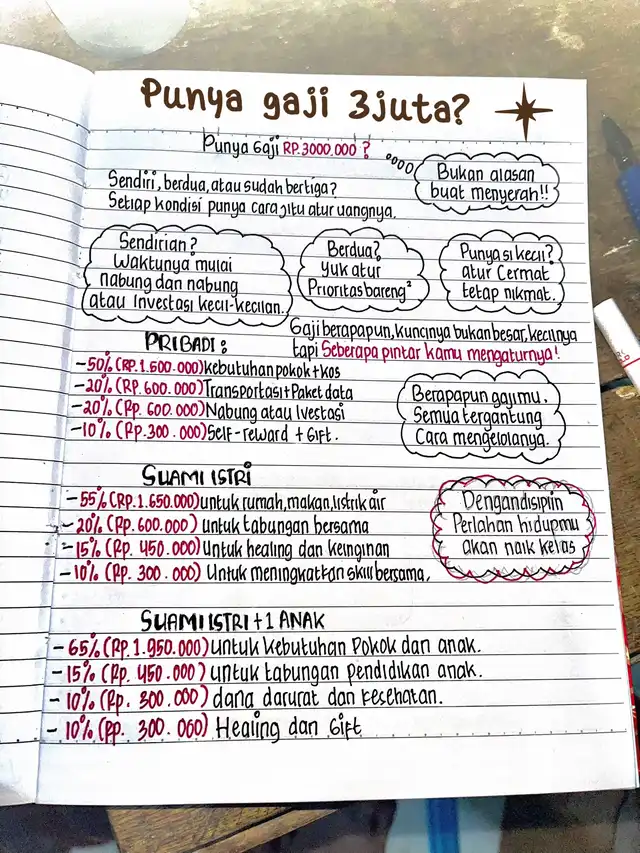 Punya gaji 3juta?
Punya Gaji RP.3000.000 ?
Bukan alasan
buat menyerah!!
Sendiri, berdua, atau sudah bertiga?
Setiap kondisi punya cara jitu atur uangnya.
Sendirian?
Waktunya mulai
nabung dan nabung
atau Investasi kecil-kecilan.
Berdua?
Yuk atur
Prioritas bareng²
Punya si kecil?
atur Cermat
tetap nikmat.
Gaji berapapun, kuncinya bukan besar, kecilnya
tapi Seberapa pintar kamu mengaturnya!
PRIBADI :
-50% (RP.1.500.000) kebutuhan pokok + kos
-20% (RP. 600.000) Transportasi + Paket data
-20% (Rp. 600.000) Nabung atau Ivestasi
-10% (Rp.300.000) Self-reward + Gift.
Berapapun gajimu.
Semua tergantung
Cara mengelolanya.
SUAMI ISTRI
-55% (RP.1.650.000) untuk rumah, makan, listrik air
-20% (RP.600.000) untuk tabungan bersama
-15% (RP. 450.000) Untuk healing dan keinginan
-10% (RP. 300.000) Untuk meningkatkan skill bersama.
Dengan disiplin
Perlahan hidupmu
akan naik kelas
SUAMI ISTRI + 1 ANAK
- 65% (RP.1.950.000) untuk kebutuhan Pokok dan anak.
- 15% (RP. 450.000) untuk tabungan pendidikan anak.
- 10% (Rp. 300.000) dana darurat dan kesehatan.
- 10% (Rp. 300.000) Healing dan Gift